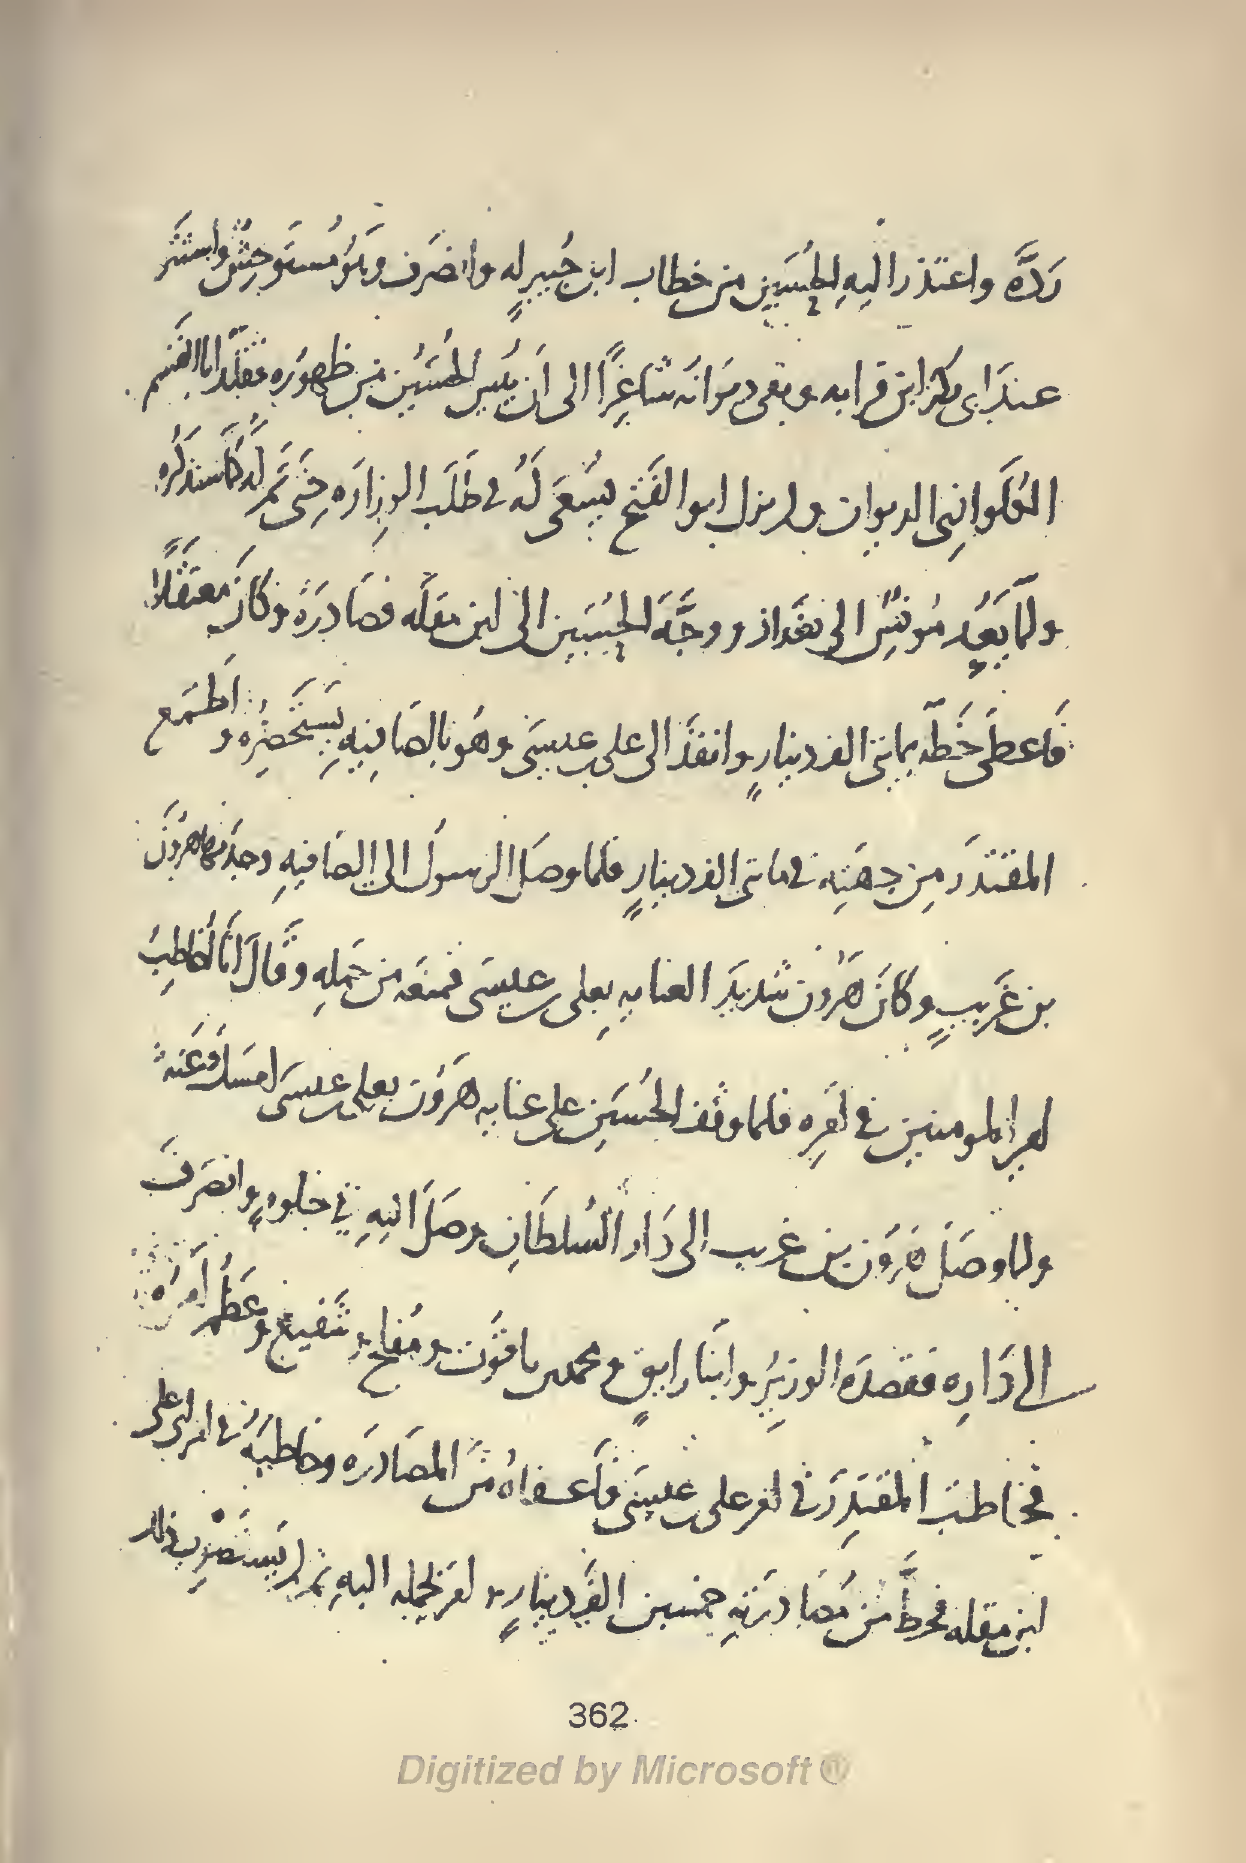 رَدَّه واعتذر اليهِ الحُسَين من خطاب ابن جُبير له وانصَرف وهَوُ مُستَوحِشٌ واستَتَر
عند ابى بكر ابن قرابه وبقى ديوَانه شاغِرًا الى اَن يَئِس الحُسَين من ظهورِه فقلَّد ابا القسم
الكَلوَاذِنى الديوان ولم يزل ابو الفَتح يَسْعَى لَهُ فى طَلَب الوِزارَه حَتى تَمّ لَه كَما سنذكُره
ولمّا بَعُد مُونِسٌ الى بغداذ ووجَّه الحُسَين الى ابن مقلَه فصَادرَهُ وكانَ معتقَلًا
فَاعطَى خَطّه بمايتى الف دينارٍ وانفذَ الى على بن عيسَى وهُو بالصَافِيهِ يَستَحضِرُه واَطمَع
المقتدَر مِن جهَتِه فى مايتى الف دينارٍ فلما وصَل الرسولُ الى الصَافيهِ وجَدَ بها هرُونَ
بن غَريبٍ وكانَ هَرُون شديدَ العنايه بِعلى بن عيسَى فمنعَه من حَملِهِ وقَالَ انَا اُخاطبُ
امير المومنين فى اَمرِه فلما وقف الحُسَين على عنايه هَرُون بعلى بن عيسَى امسَك عَنه
ولما وصَل هَرُون بن غريب الى دَار السُلطَانِ وصَل اليهِ فى خلوهٍ وانصَرفَ
الى دَارِه فقصدَه الوزيرُ وابنا رايقٍ ومحمد بن ياقُوت ومُفلح وشَفيع وعَظُم اَمرُه
فخاطبَ المقتَدِرَ فى امر على بن عيسَى فاَعفاهُ منَ المصَادرَه وخاطبَهُ فى امر ابى على
ابن مقله فحَطَّ من مُصَادرَتِهِ خمسين الف دينارٍ وامرَ بحمله اليهِ ثم لم يَستَصْوِب ذلك
362
Digitized by Microsoft ®